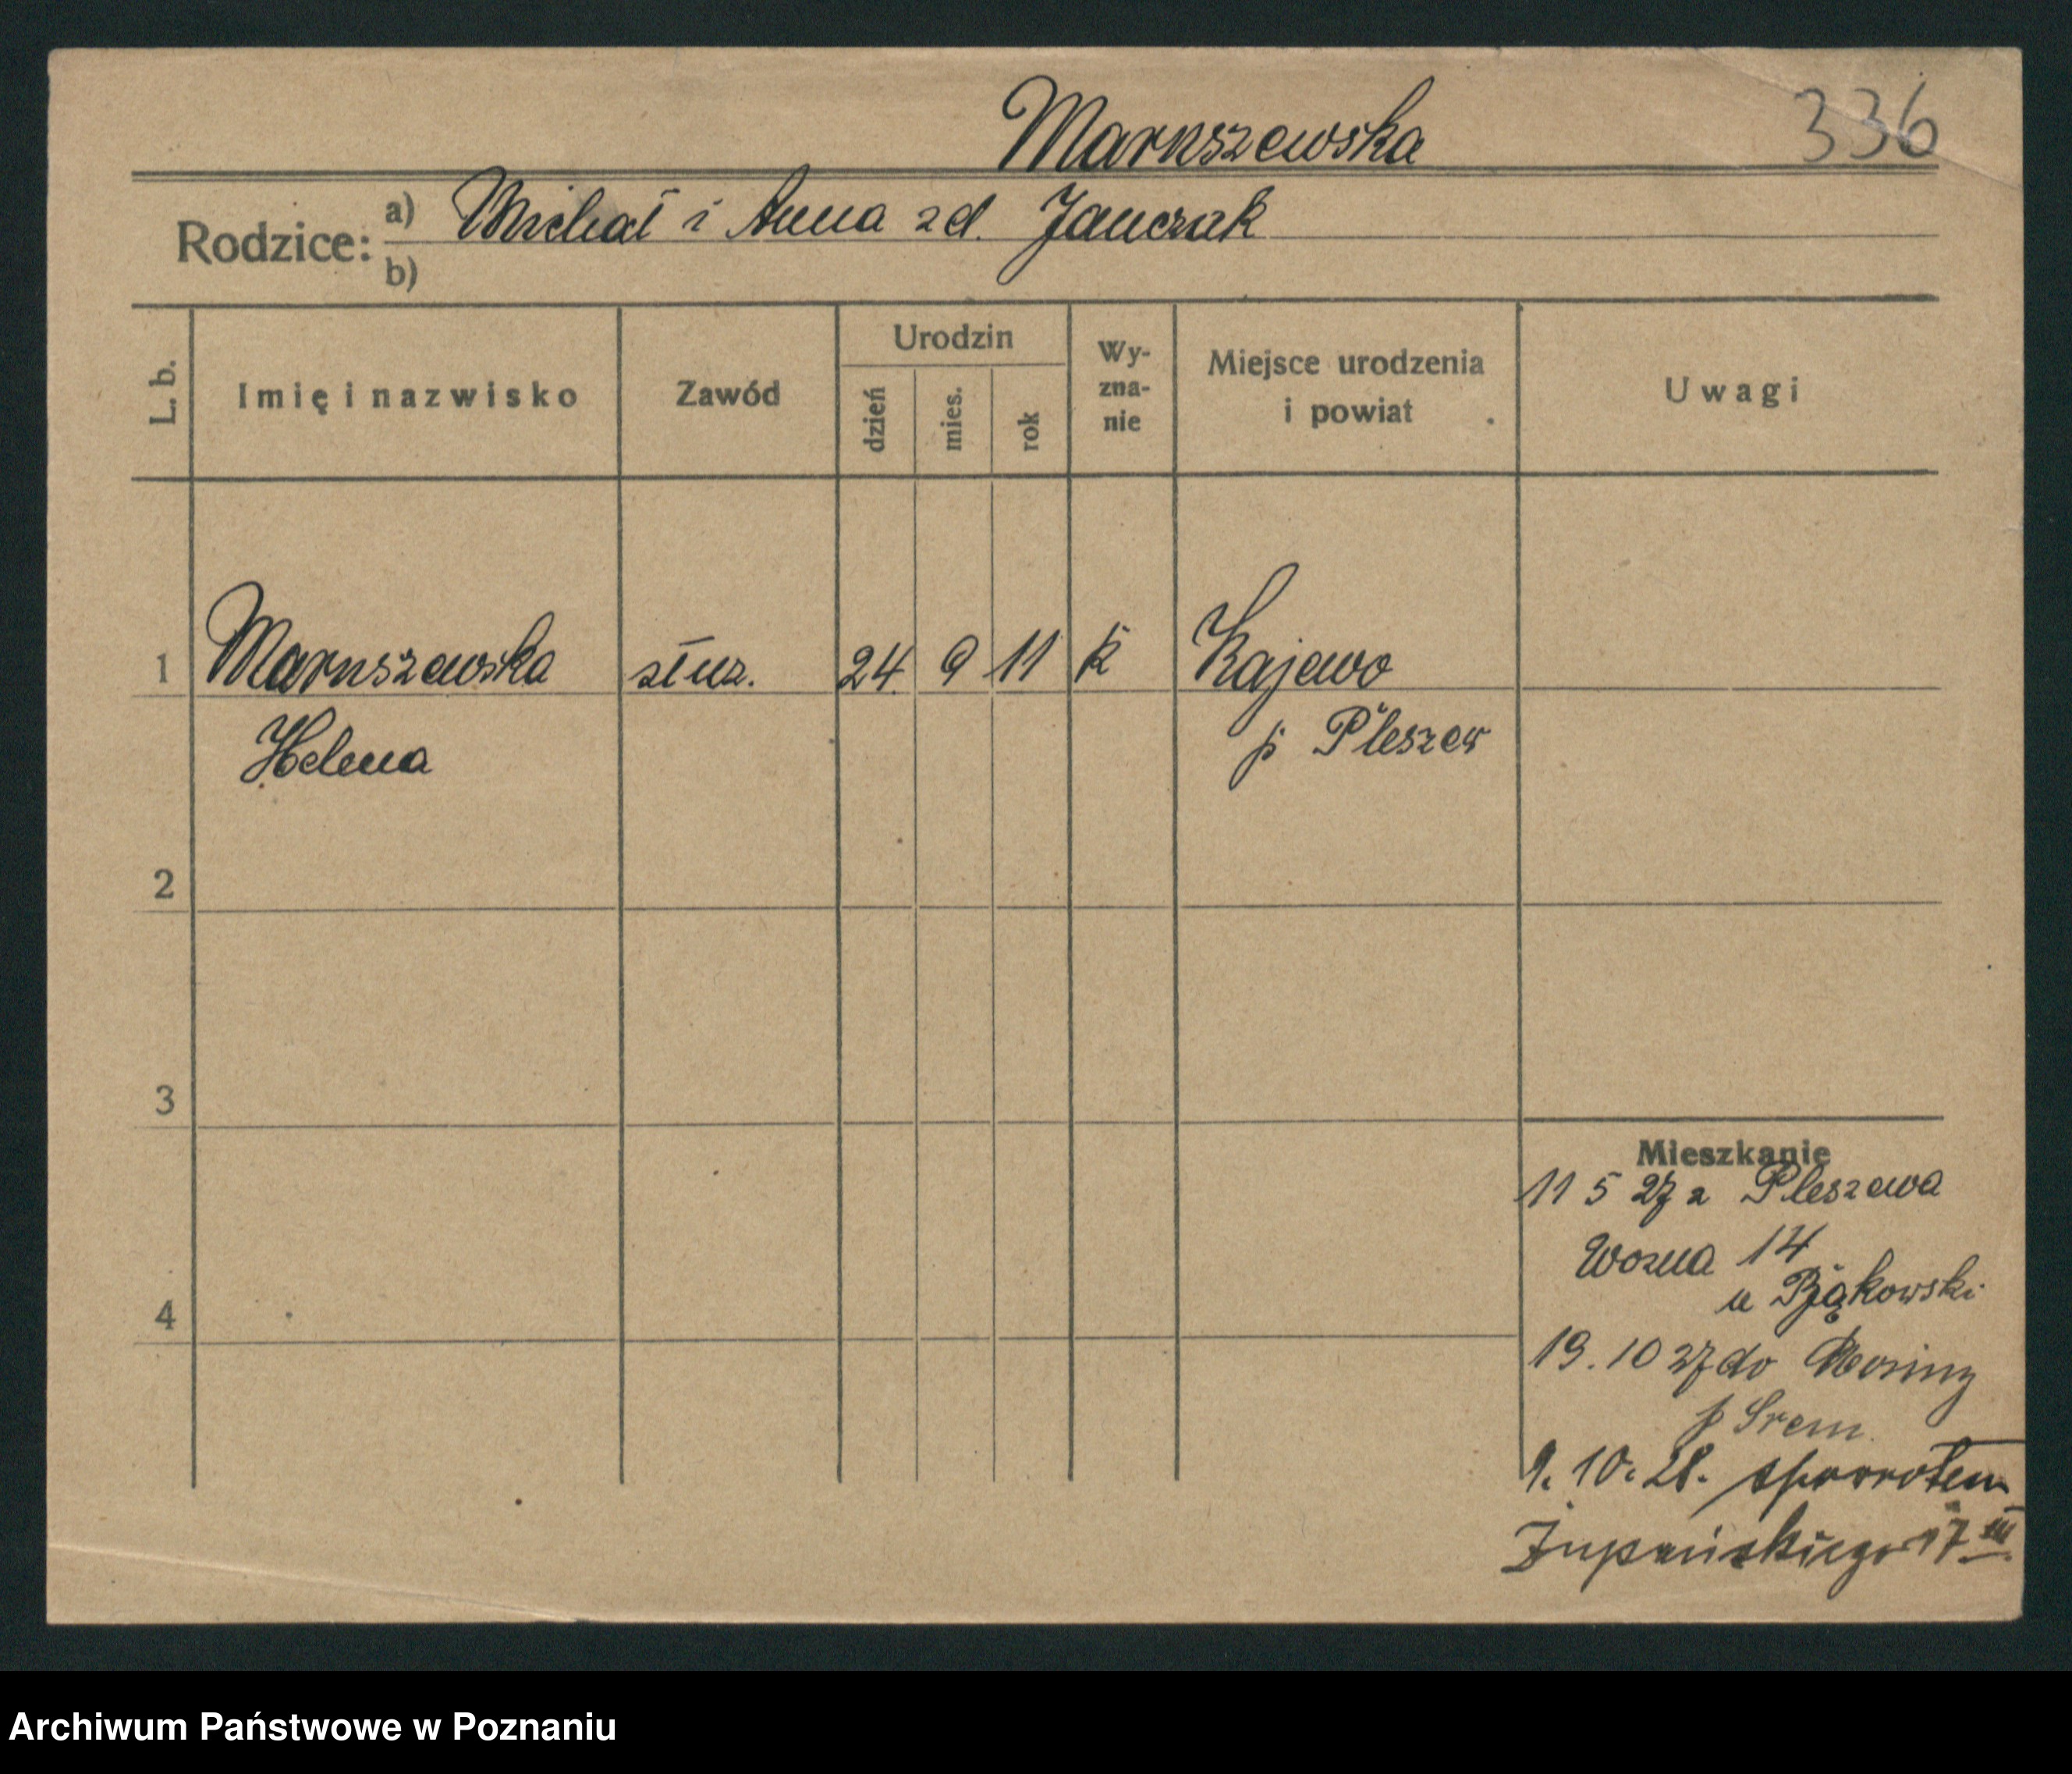 Maruszewska 336
Rodzice: a) Michał i Anna zd. Janczak
b)
L. b. Imię i nazwisko Zawód Urodzin dzień mies. rok Wy-zna-nie Miejsce urodzenia i powiat Uwagi
1 Maruszewska służ. 24. 9 11 k Kajewo
Helena p Pleszew
2
3
4
Mieszkanie
11 5 27 z Pleszewa
Woźna 14
u Bąkowski
19. 10 27 do Mosiny
p Śrem
9. 10. 28. spowrotem
Żupańskiego 17 III
Archiwum Państwowe w Poznaniu